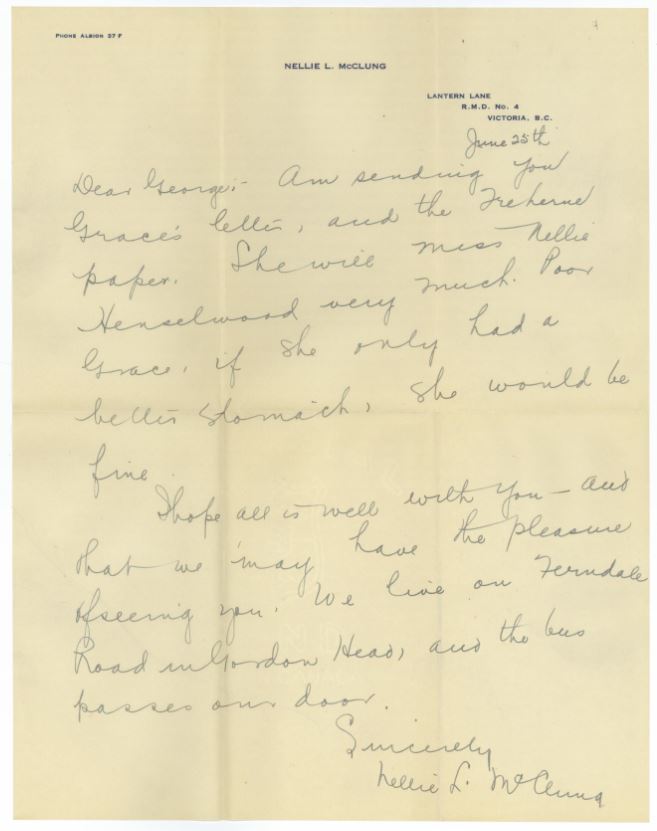 PHONE ALBION 27 F
NELLIE L. McCLUNG
LANTERN LANE
R.M.D. No. 4
VICTORIA, B.C.
June 25th
Dear George:- Am sending you
Grace's letter, and the Treherne
paper. She will miss Nellie
Henselwood very much. Poor
Grace, if she only had a
better stomach, she would be
fine.
I hope all is well with you – and
that we may have the pleasure
of seeing you. We live on Ferndale
Road in Gordon Head, and the bus
passes our door.
Sincerely
Nellie L. McClung